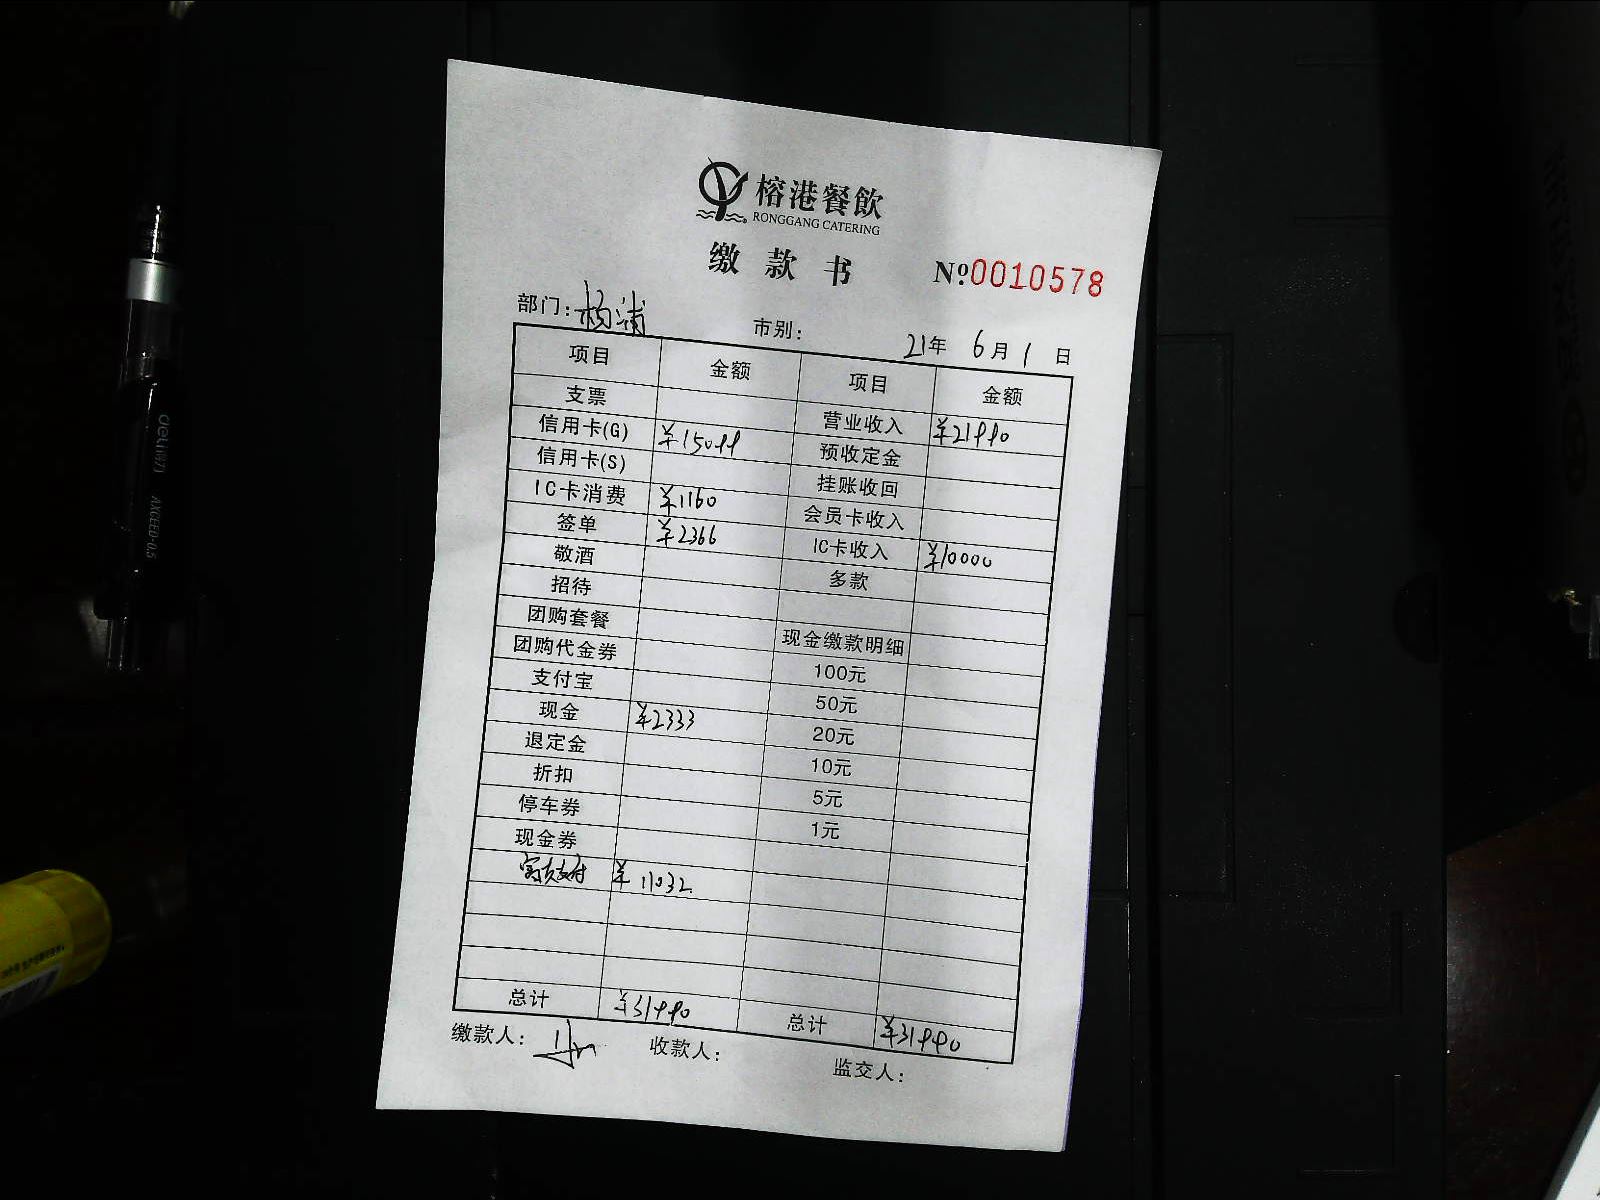 榕港餐飲
RONGGANG CATERING
缴款书 №0010578
部门：杨浦 市别： 21年 6月 1 日
项目 金额 项目 金额
支票 营业收入 ¥21990
信用卡(G) ¥15099 预收定金
信用卡(S) 挂账收回
IC卡消费 ¥1160 会员卡收入
签单 ¥2366 IC卡收入 ¥10000
敬酒 多款
招待
团购套餐 现金缴款明细
团购代金券 100元
支付宝 50元
现金 ¥2333 20元
退定金 10元
折扣 5元
停车券 1元
现金券
支付 ¥11032
总计 ¥31990 总计 ¥31990
缴款人： 收款人： 监交人：
deli得力 AXCEED-0.5